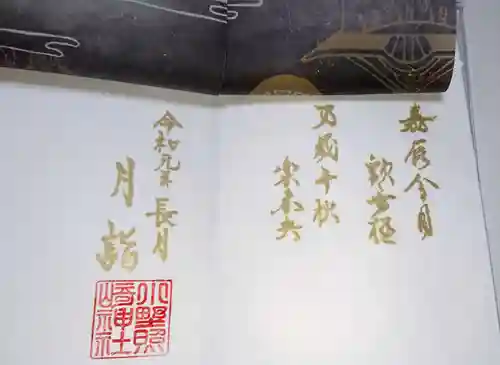 嘉辰令月
歓無極
万歳千秋
楽未央
令和元年 長月
月詣
小野照
崎神社